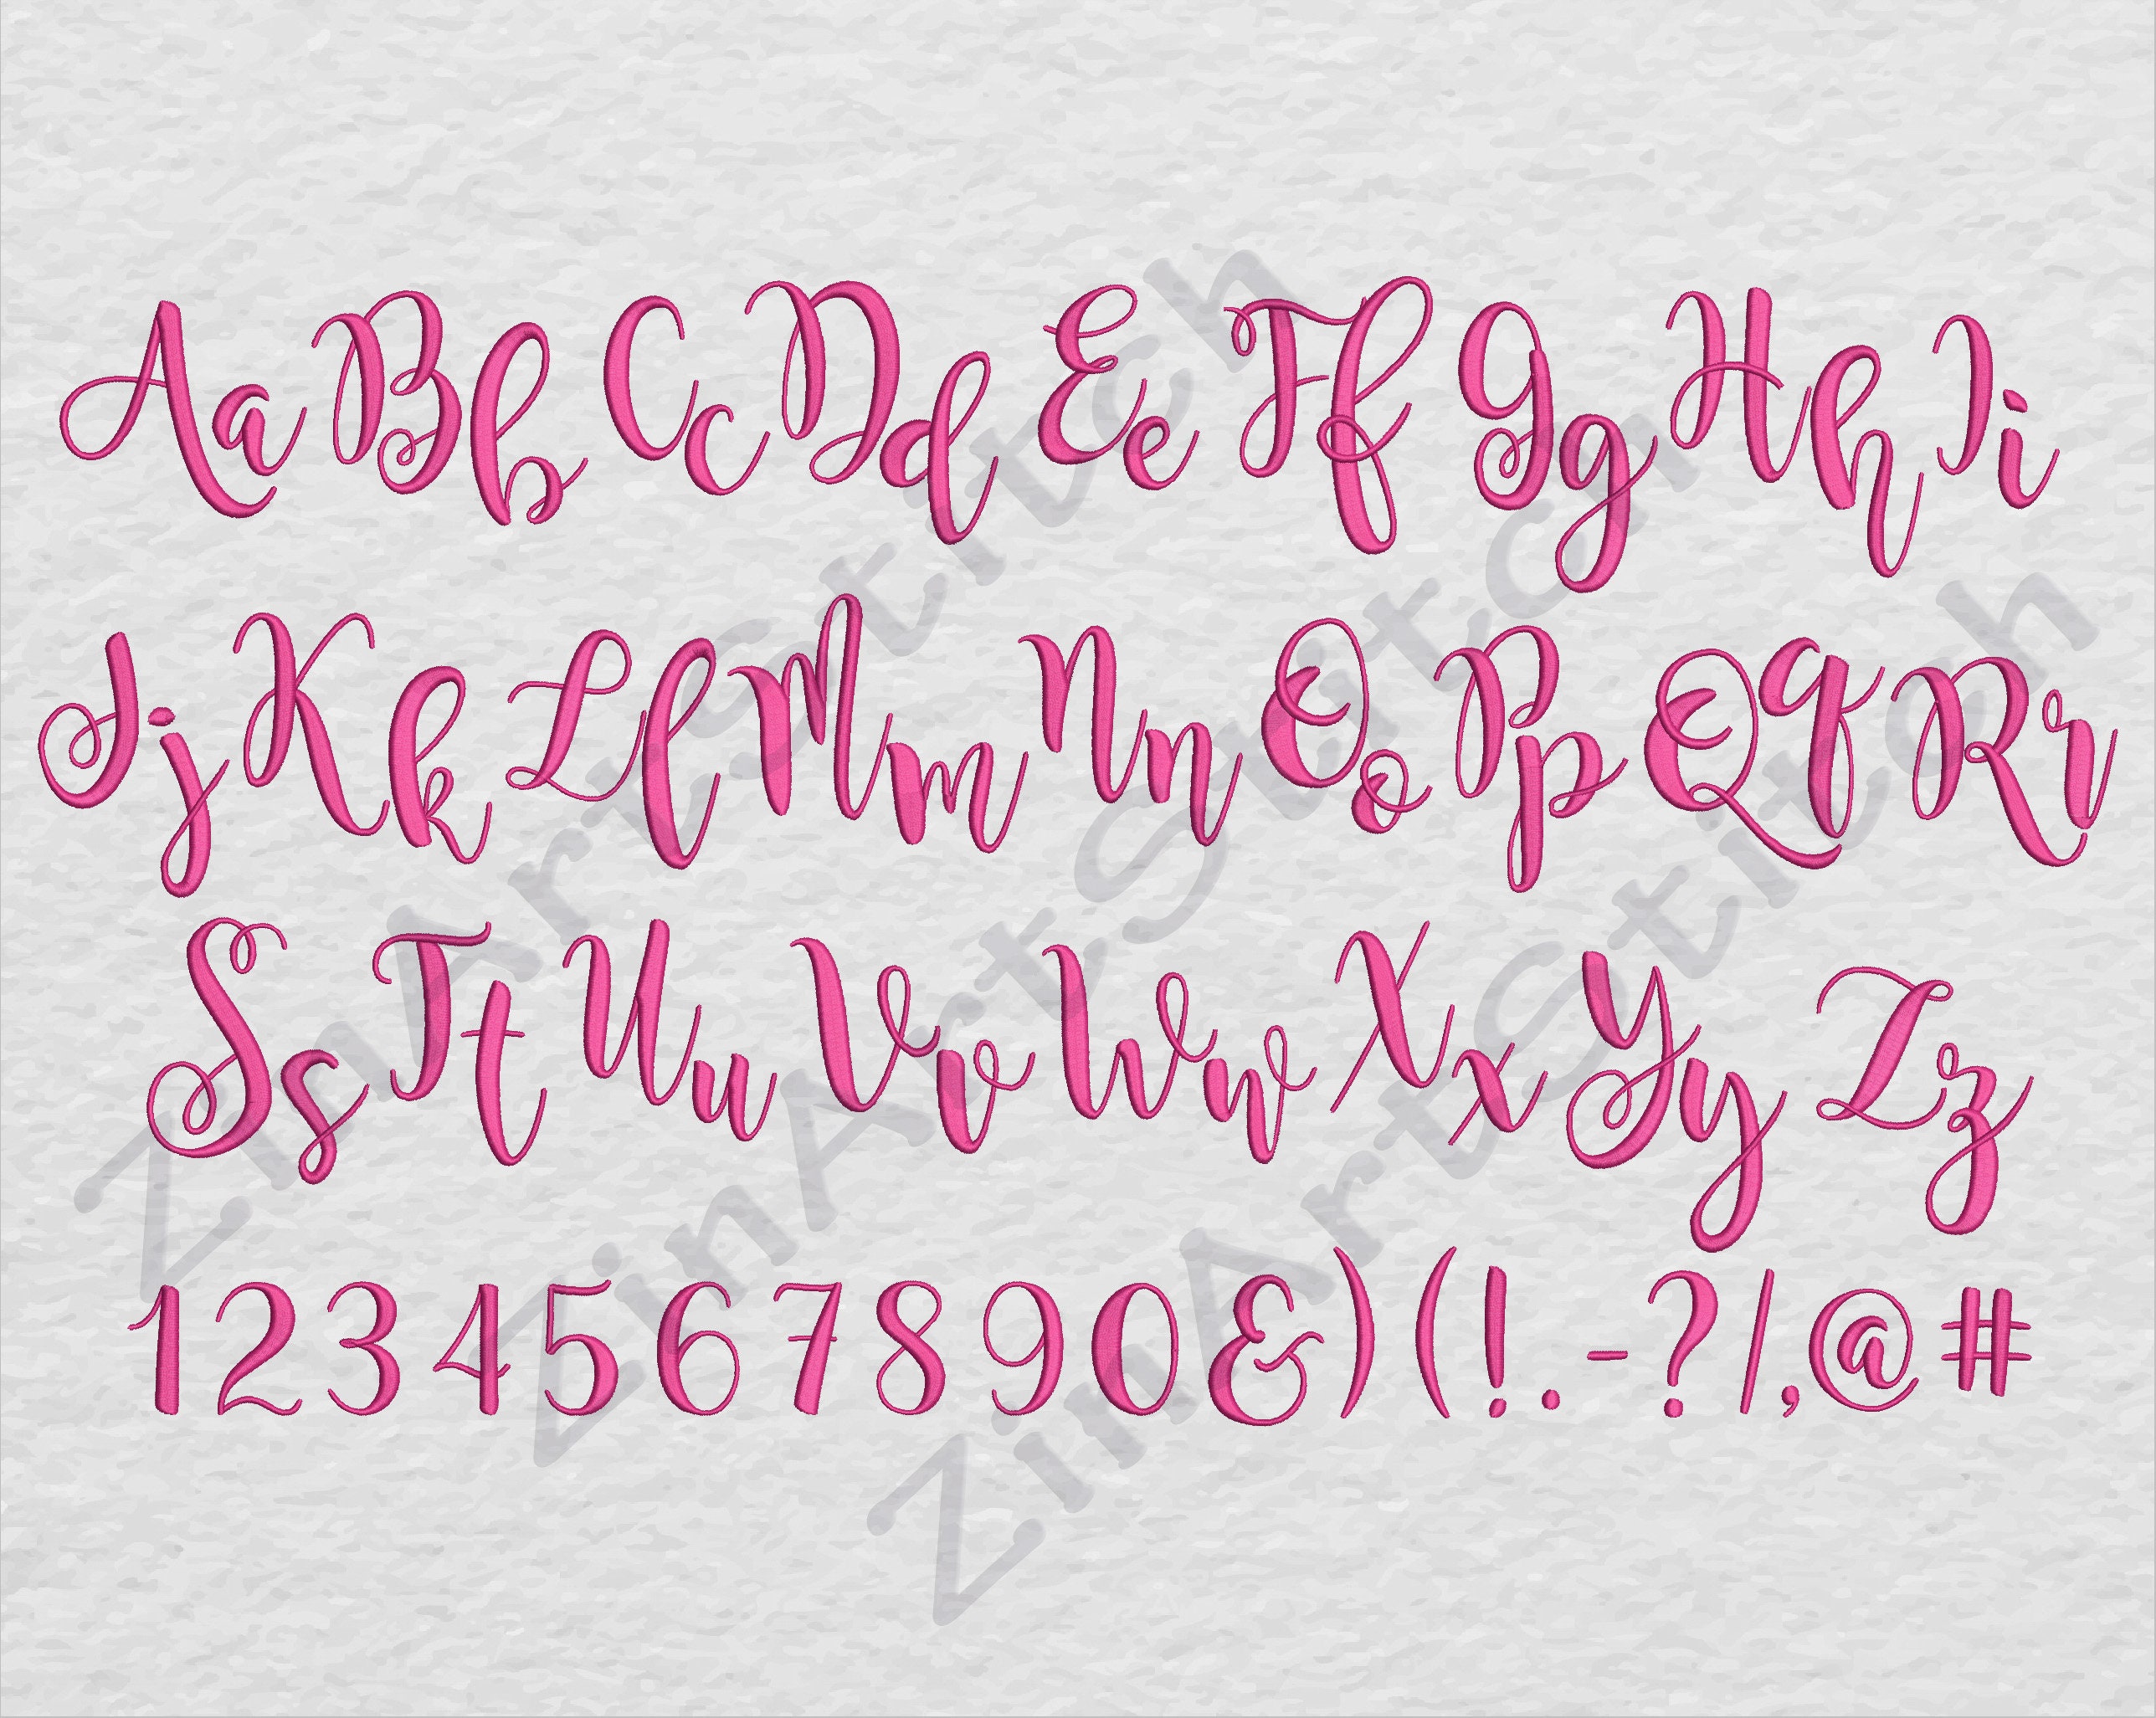 Aa Bb Cc Dd Ee Ff Gg Hh Ii
Jj Kk Ll Mm Nn Oo Pp Qq Rr
Ss Tt Uu Vv Ww Xx Yy Zz
1 2 3 4 5 6 7 8 9 0 & ) ( ! . - ? / , @ #
ZinArtStitch
ZinArtStitch
ZinArtStitch